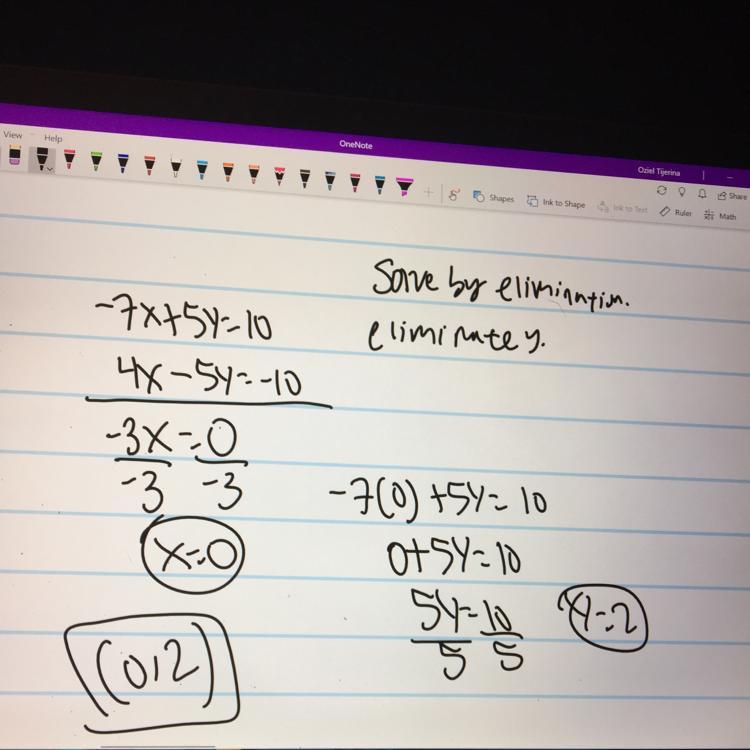 OneNote
Oziel Tijerina
View
Help
Shapes
Ink to Shape
Ink to Text
Ruler
Share
Math
Solve by elimination.
eliminate y.
-7x+5y=10
4x-5y=-10
-3x=0
-3 -3
x=0
(0,2)
-7(0)+5y=10
0+5y=10
5y=10
5 5
y=2